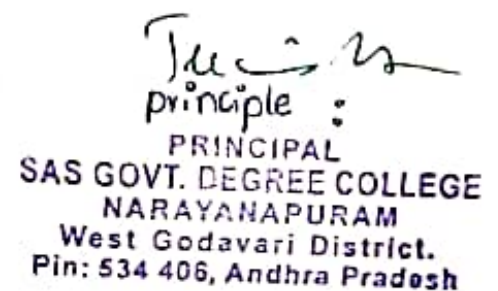 principle :
PRINCIPAL
SAS GOVT. DEGREE COLLEGE
NARAYANAPURAM
West Godavari District.
Pin: 534 406, Andhra Pradesh